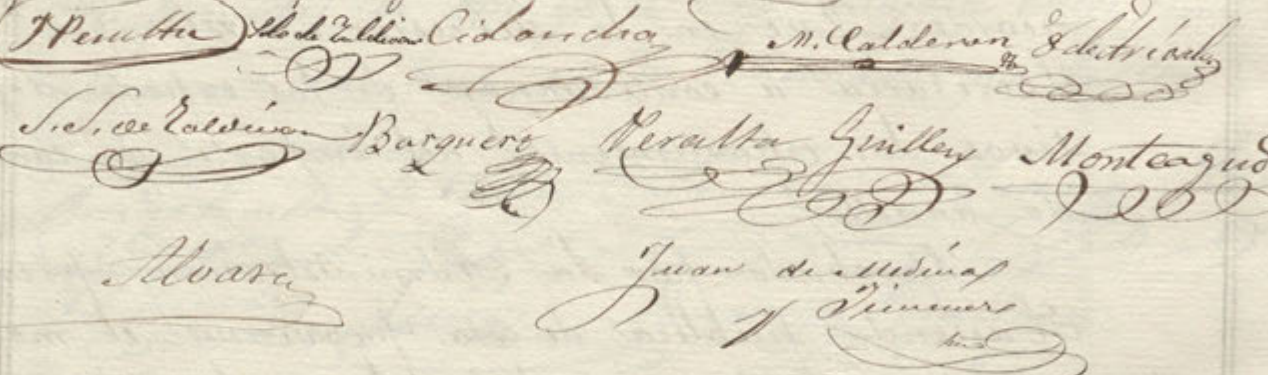 Peralta de Zaldivar Cidoncha M. Calderon
S. S. de Zaldivar Barquero Peralta Guillen Monteagudo
Alvarez
Juan de Medina
y Jimenez